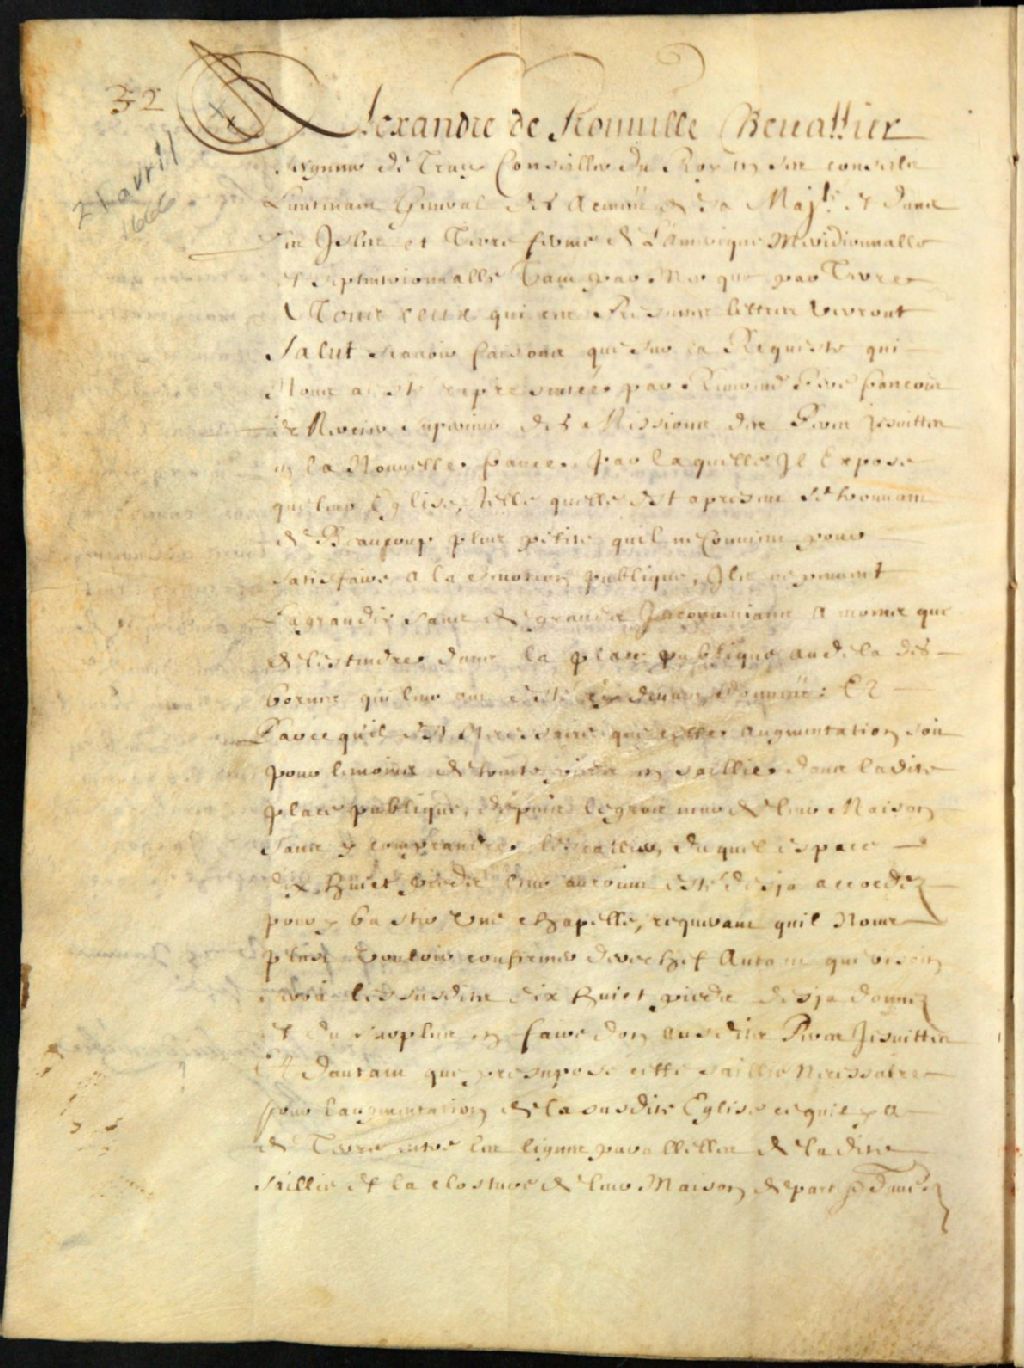 32
21 avril
1666
Alexandre de Prouville Chevallier
Seigneur de Tracy Conseiller du Roy en ses conseils
Lieutenant General des Armées de sa Maj.té et dans
les Isles et Terre ferme de L'Amerique Meridionnalle
et septentrionnalle Tant par Mer que par Terre
A Tous ceux qui ces Presentes lettres verront
Salut scavoir faisons que sur la Requeste qui
Nous a esté representée par Reverend Pere francois
le Mercier superieur des Missions des Peres Jesuittes
en la Nouvelle france, par laquelle Il Expose
que leur Eglise, telle quelle est apresent se trouvant
de Beaucoup plus petite quil ne convient pour
satisfaire a la devotion publique, Ils ne peuvent
Lagrandir sans de grandes Incommo a moins que
de lestendre dans la place publique au dela des
bornes qui leur ont esté cy devant données: Et
Parce quil est Necessaire que cette augmentation soit
pour lemoins de trente pieds en saillie dans ladite
place publique, depuis legros mur de leur Maison
sans y comprendre lescallier, duquel espace
dix huict pieds leur auroient esté desja accordez
pour y bastir Une chapelle, requerant quil Nous
plust vouloir confirmer derechef Autant que besoin
seroit les susdits dix huict pieds desja donnez
et du surplus en faire don ausdits Peres Jesuittes
Et dautant que presupose cette saillie Necessaire
pour laugmentation de la susdite Eglise ce quil y a
de Terre entre les lignes paralleles de ladite
saillie et la closture de leur Maison de part et d'autre